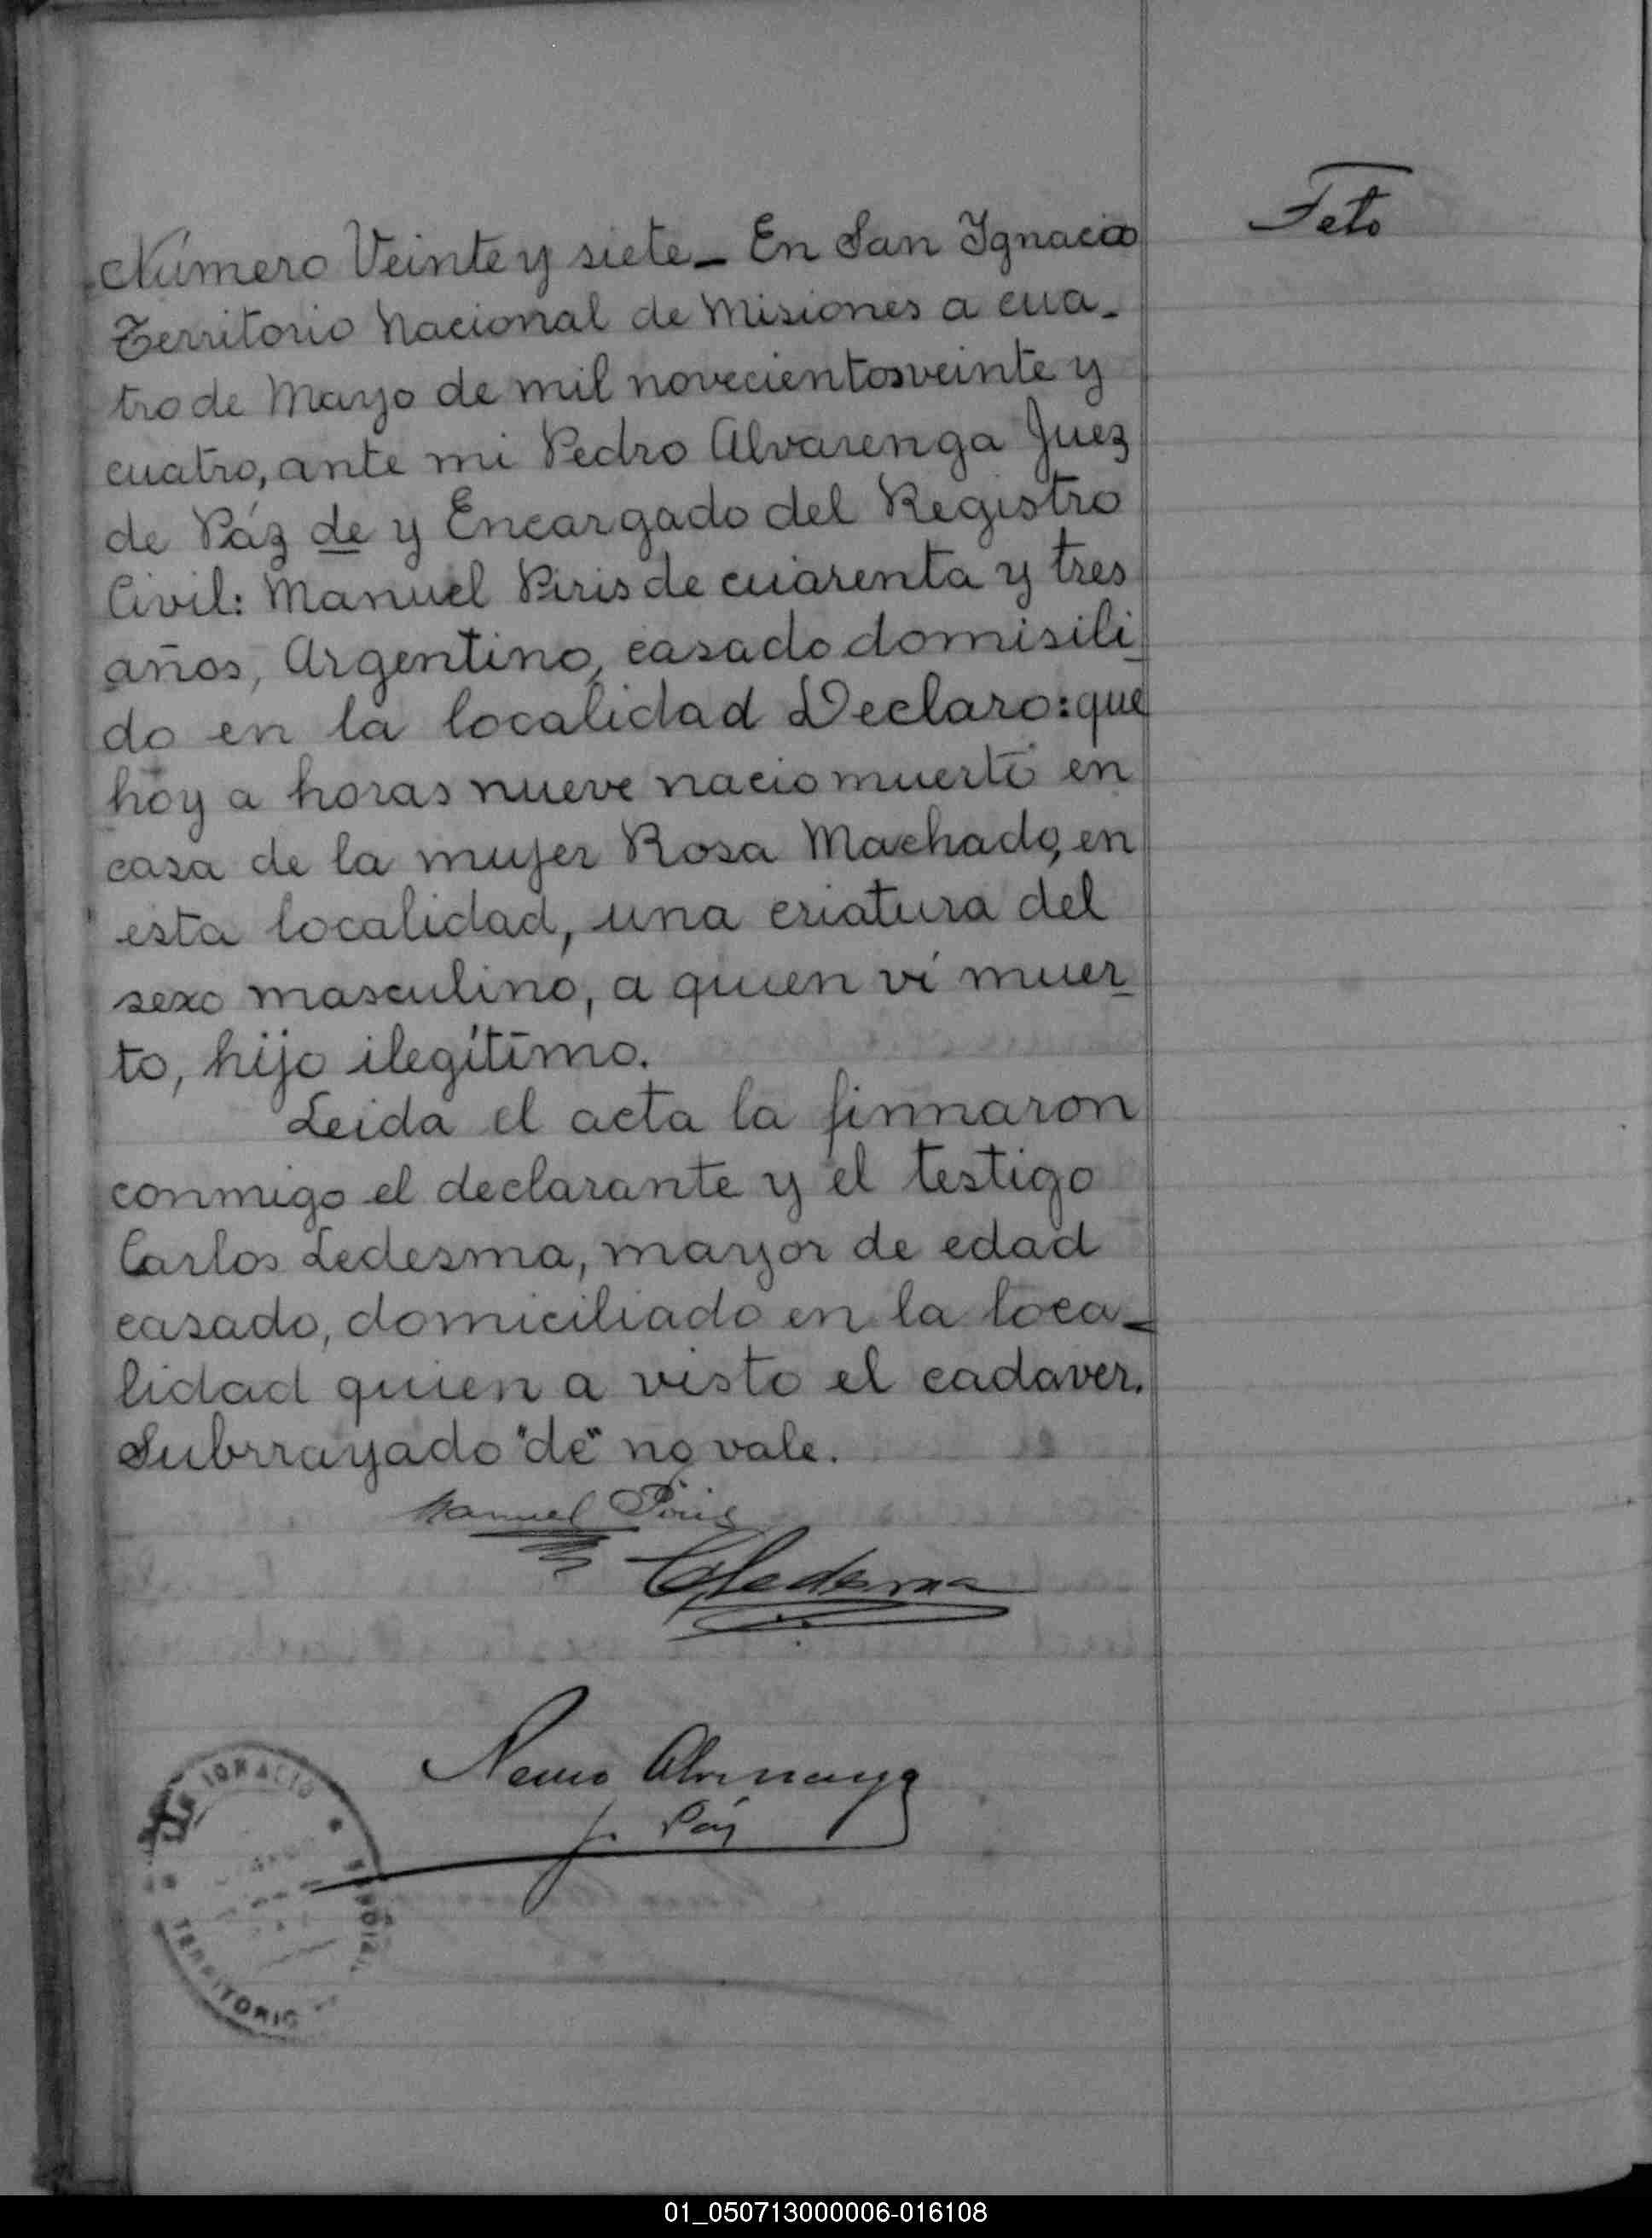 Feto
Número Veinte y siete - En San Ygnacio
Territorio Nacional de Misiones a cua-
tro de Mayo de mil novecientos veinte y
cuatro, ante mi Pedro Alvarenga Juez
de Páz de y Encargado del Registro
Civil: Manuel Piris de cuarenta y tres
años, Argentino, casado domisili_
do en la localidad Declaro: que
hoy a horas nueve nacio muerto en
casa de la mujer Rosa Machado, en
esta localidad, una criatura del
sexo masculino, a quien ví muer_
to, hijo ilegítimo.
Leida el acta la firmaron
conmigo el declarante y el testigo
Carlos Ledesma, mayor de edad
casado, domiciliado en la loca-
lidad quien a visto el cadaver.
Subrrayado "de" no vale.
Manuel Piris
CLedesma
Alvarenga
j. Páz
IGNACIO
TERRITORIO
01_050713000006-016108